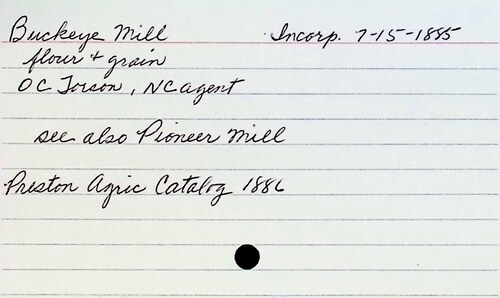 Buckeye Mill Incorp. 7-15-1885
flour + grain
OC Torson, NC agent
see also Pioneer Mill
Preston Agric Catalog 1886